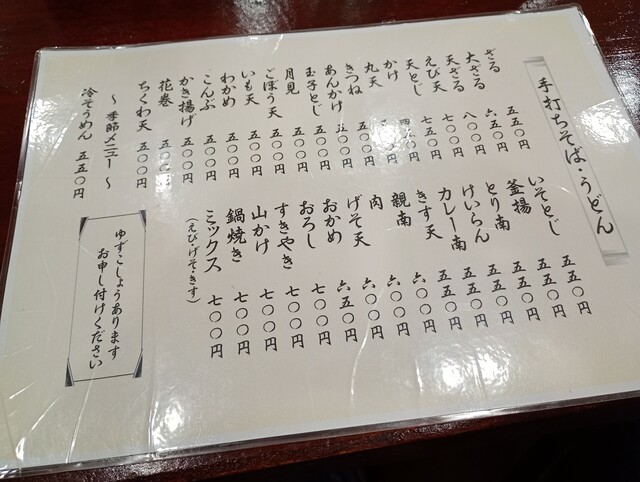 手打ちそば・うどん
ざる 五五〇円
大ざる 六五〇円
天ざる 八〇〇円
えび天 七〇〇円
天とじ 七五〇円
かけ 四〇〇円
丸天 五〇〇円
きつね 五〇〇円
あんかけ 五〇〇円
玉子とじ 五〇〇円
月見 五〇〇円
ごぼう天 五〇〇円
いも天 五〇〇円
わかめ 五〇〇円
こんぶ 五〇〇円
かき揚げ 五〇〇円
花巻 五〇〇円
ちくわ天 五〇〇円
～ 季節メニュー ～
冷そうめん 五五〇円
いそとじ 五五〇円
釜揚 五五〇円
とり南 五五〇円
けいらん 五五〇円
カレー南 五五〇円
きす天 五五〇円
親南 六〇〇円
肉 六〇〇円
げそ天 六〇〇円
おかめ 六五〇円
おろし 七〇〇円
すきやき 七〇〇円
山かけ 七〇〇円
鍋焼き 七〇〇円
ミックス 七〇〇円
(えび・げそ・きす)
ゆずこしょうあります
お申し付けください